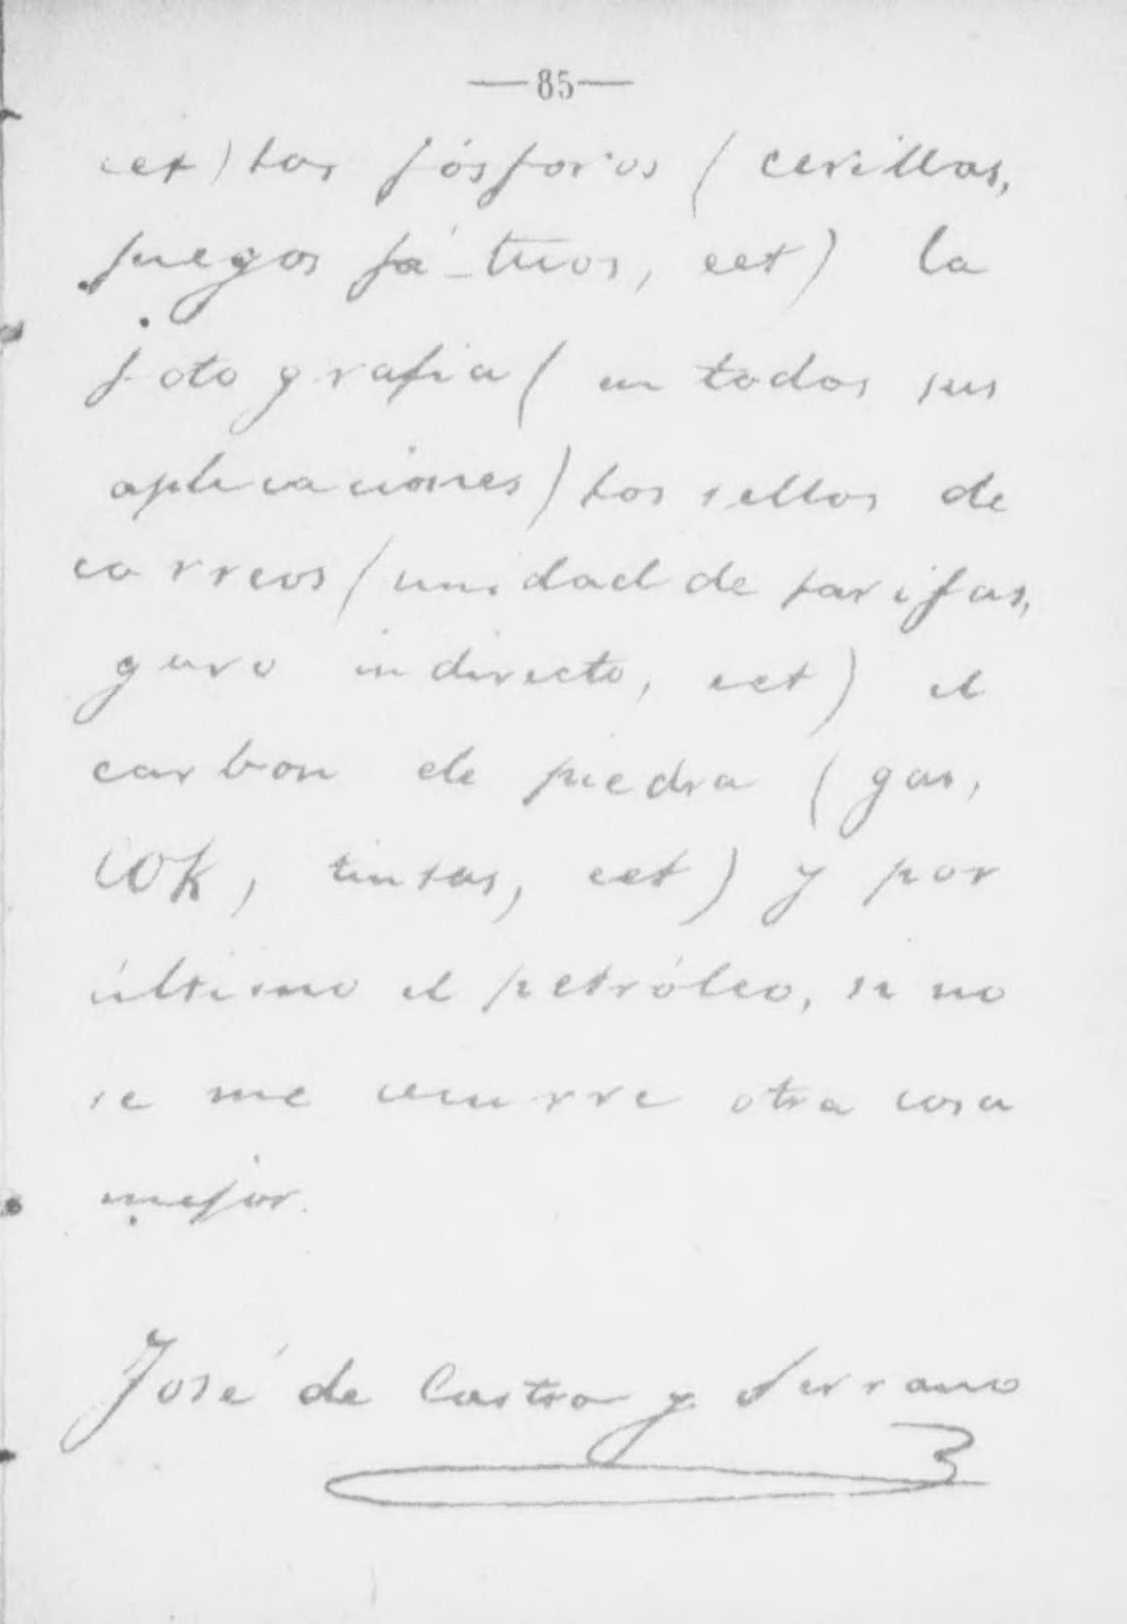 —85—
eet) Los fósforos (cerillas,
fuegos fá-tuos, eet) la
fotografia (en todos sus
aplicaciones) Los sellos de
correos (unidad de tarifas,
guro indirecto, eet) el
carbon de piedra (gas,
COK, tintas, eet) y por
último el petróleo, si no
se me ocurre otra cosa
mejor.
José de Castro y Serrano